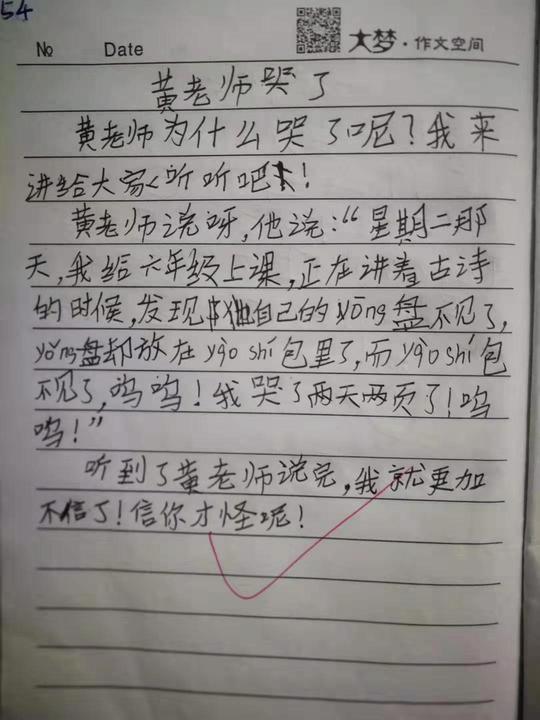 54
№ Date
大梦·作文空间
黄老师哭了
黄老师为什么哭了呢?我来
讲给大家听听吧!
黄老师说呀,他说:“星期二那
天,我给六年级上课,正在讲着古诗
的时候,发现他自己的yōng盘不见了,
yōng盘却放在yào shí包里了,而yào shí包
不见了,呜呜!我哭了两天两页了!呜
呜!”
听到了黄老师说完,我就更加
不信了!信你才怪呢!